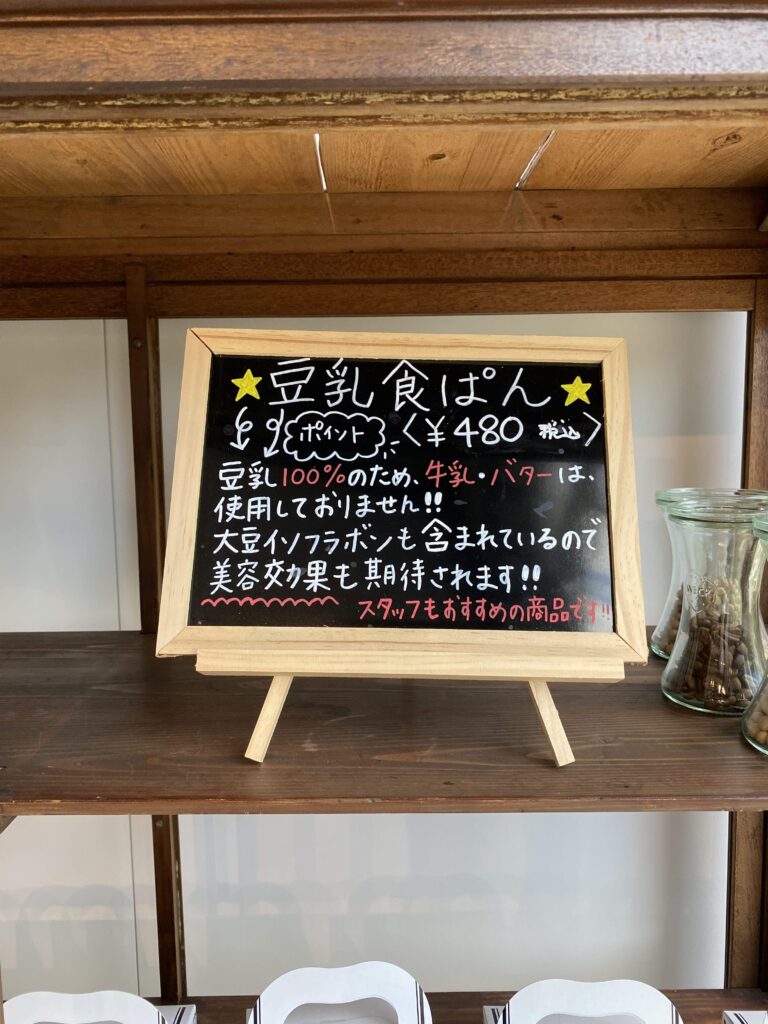 ★豆乳食ぱん★
ポイント 〈¥480 税込〉
豆乳100%のため、牛乳・バターは、
使用しておりません!!
大豆イソフラボンも含まれているので
美容効果も期待されます!!
スタッフもおすすめの商品です!!